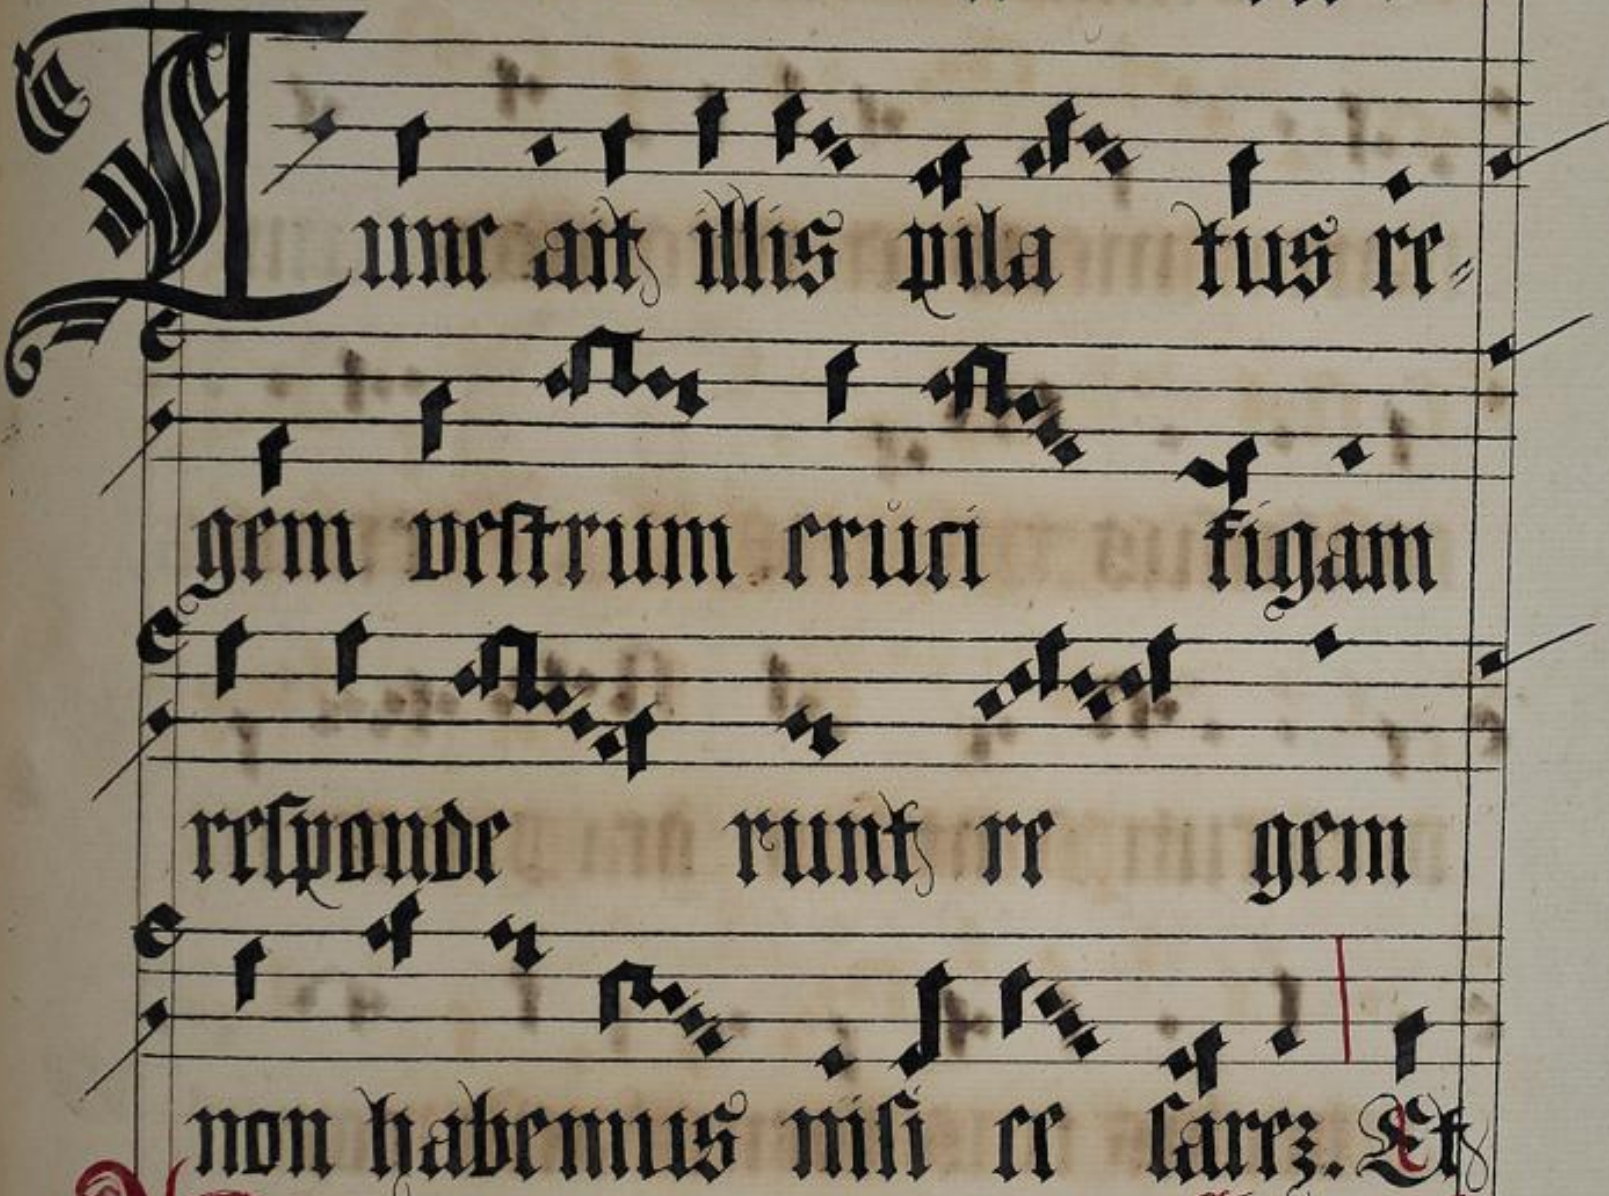 Tunc ait illis pila tus re⸗
gem veſtrum cruci figam
reſponde runt re gem
non habemus niſi ce ſarez. Et